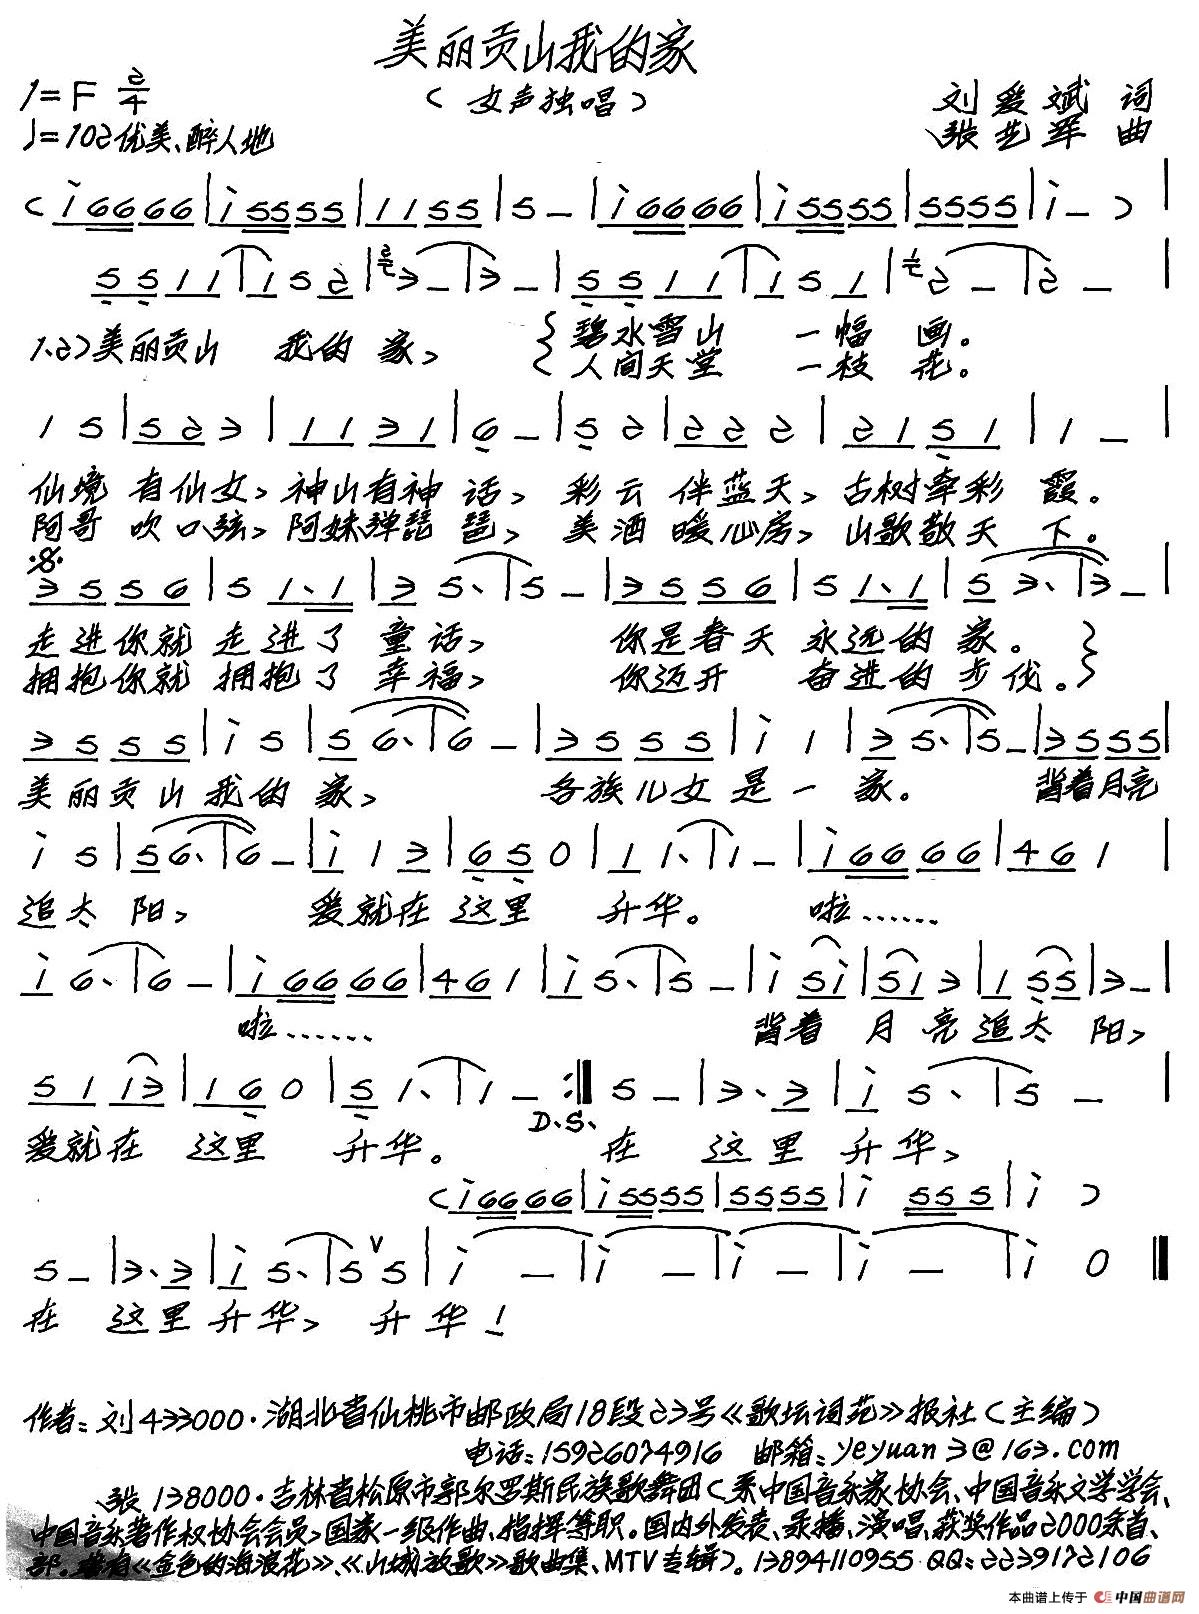 美丽贡山我的家
（女声独唱）
1=F 2/4
♩=102 优美、醉人地
刘爱斌 词
张艺军 曲
( i 6666 | i 5555 | 1155 | 5 – | i 6666 | i 5555 | 5555 | i – )
5511 | 1 5 2 | 3 – | 3 – | 5511 | 1 5 1 | 2 – | 2 –
1.2)美丽贡山 我的家, 碧水雪山 一幅画。
人间天堂 一枝花。
1 5 | 5 2 3 | 1 1 3 1 | 6 – | 5 2 | 2 2 2 | 2 1 5 1 | 1 –
仙境 有仙女, 神山有神话, 彩云 伴蓝天, 古树牵彩霞。
阿哥 吹口弦, 阿妹弹琵琶, 美酒 暖心房, 山歌敬天下。
3 5 5 6 | 5 1. 1 | 3 5. | 5 – | 3 5 5 6 | 5 1. 1 | 5 3. | 3 –
走进你就 走进了 童话, 你是春天 永远的家。
拥抱你就 拥抱了 幸福, 你迈开 奋进的步伐。
3 5 5 5 | i 5 | 5 6. | 6 – | 3 5 5 5 | i 1 | 3 5. | 5 – | 3 5 5 5
美丽贡山 我的家, 各族儿女是一家。 背着月亮
i 5 | 5 6. | 6 – | i 1 3 | 6 5 0 | 1 1. | 1 – | i 6666 | 4 6 1
追太阳, 爱就在 这里 升华。 啦……
i 6. | 6 – | i 6666 | 4 6 1 | i 5. | 5 – | i 5 i | 5 1 3 | 1 5 5 | 3 –
啦…… 背着 月亮追太阳,
5 1 1 3 | 1 6 0 | 5 1. | 1 – :| 5 – | 3. 3 | i 5. | 5 –
D.S.
爱就在 这里 升华。 在 这里 升华,
( i 6666 | i 5555 | 5555 | i 555 | i )
5 – | 3. 3 | i 5. | 5 5 | i – | i – | i – | i – | i 0
在 这里升华, 升华!
作者:刘433000·湖北省仙桃市邮政局18段23号《歌坛词苑》报社(主编)
电话:15926074916 邮箱:yeyuan3@163.com
张138000·吉林省松原市郭尔罗斯民族歌舞团(系中国音乐家协会、中国音乐文学学会、
中国音乐著作权协会会员,国家一级作曲、指挥等职。国内外发表、录播、演唱、获奖作品2000余首、
部。《金色的海浪花》、《山城放歌》歌曲集、MTV专辑)。13894110955 QQ:2239172106
本曲谱上传于 中国曲谱网